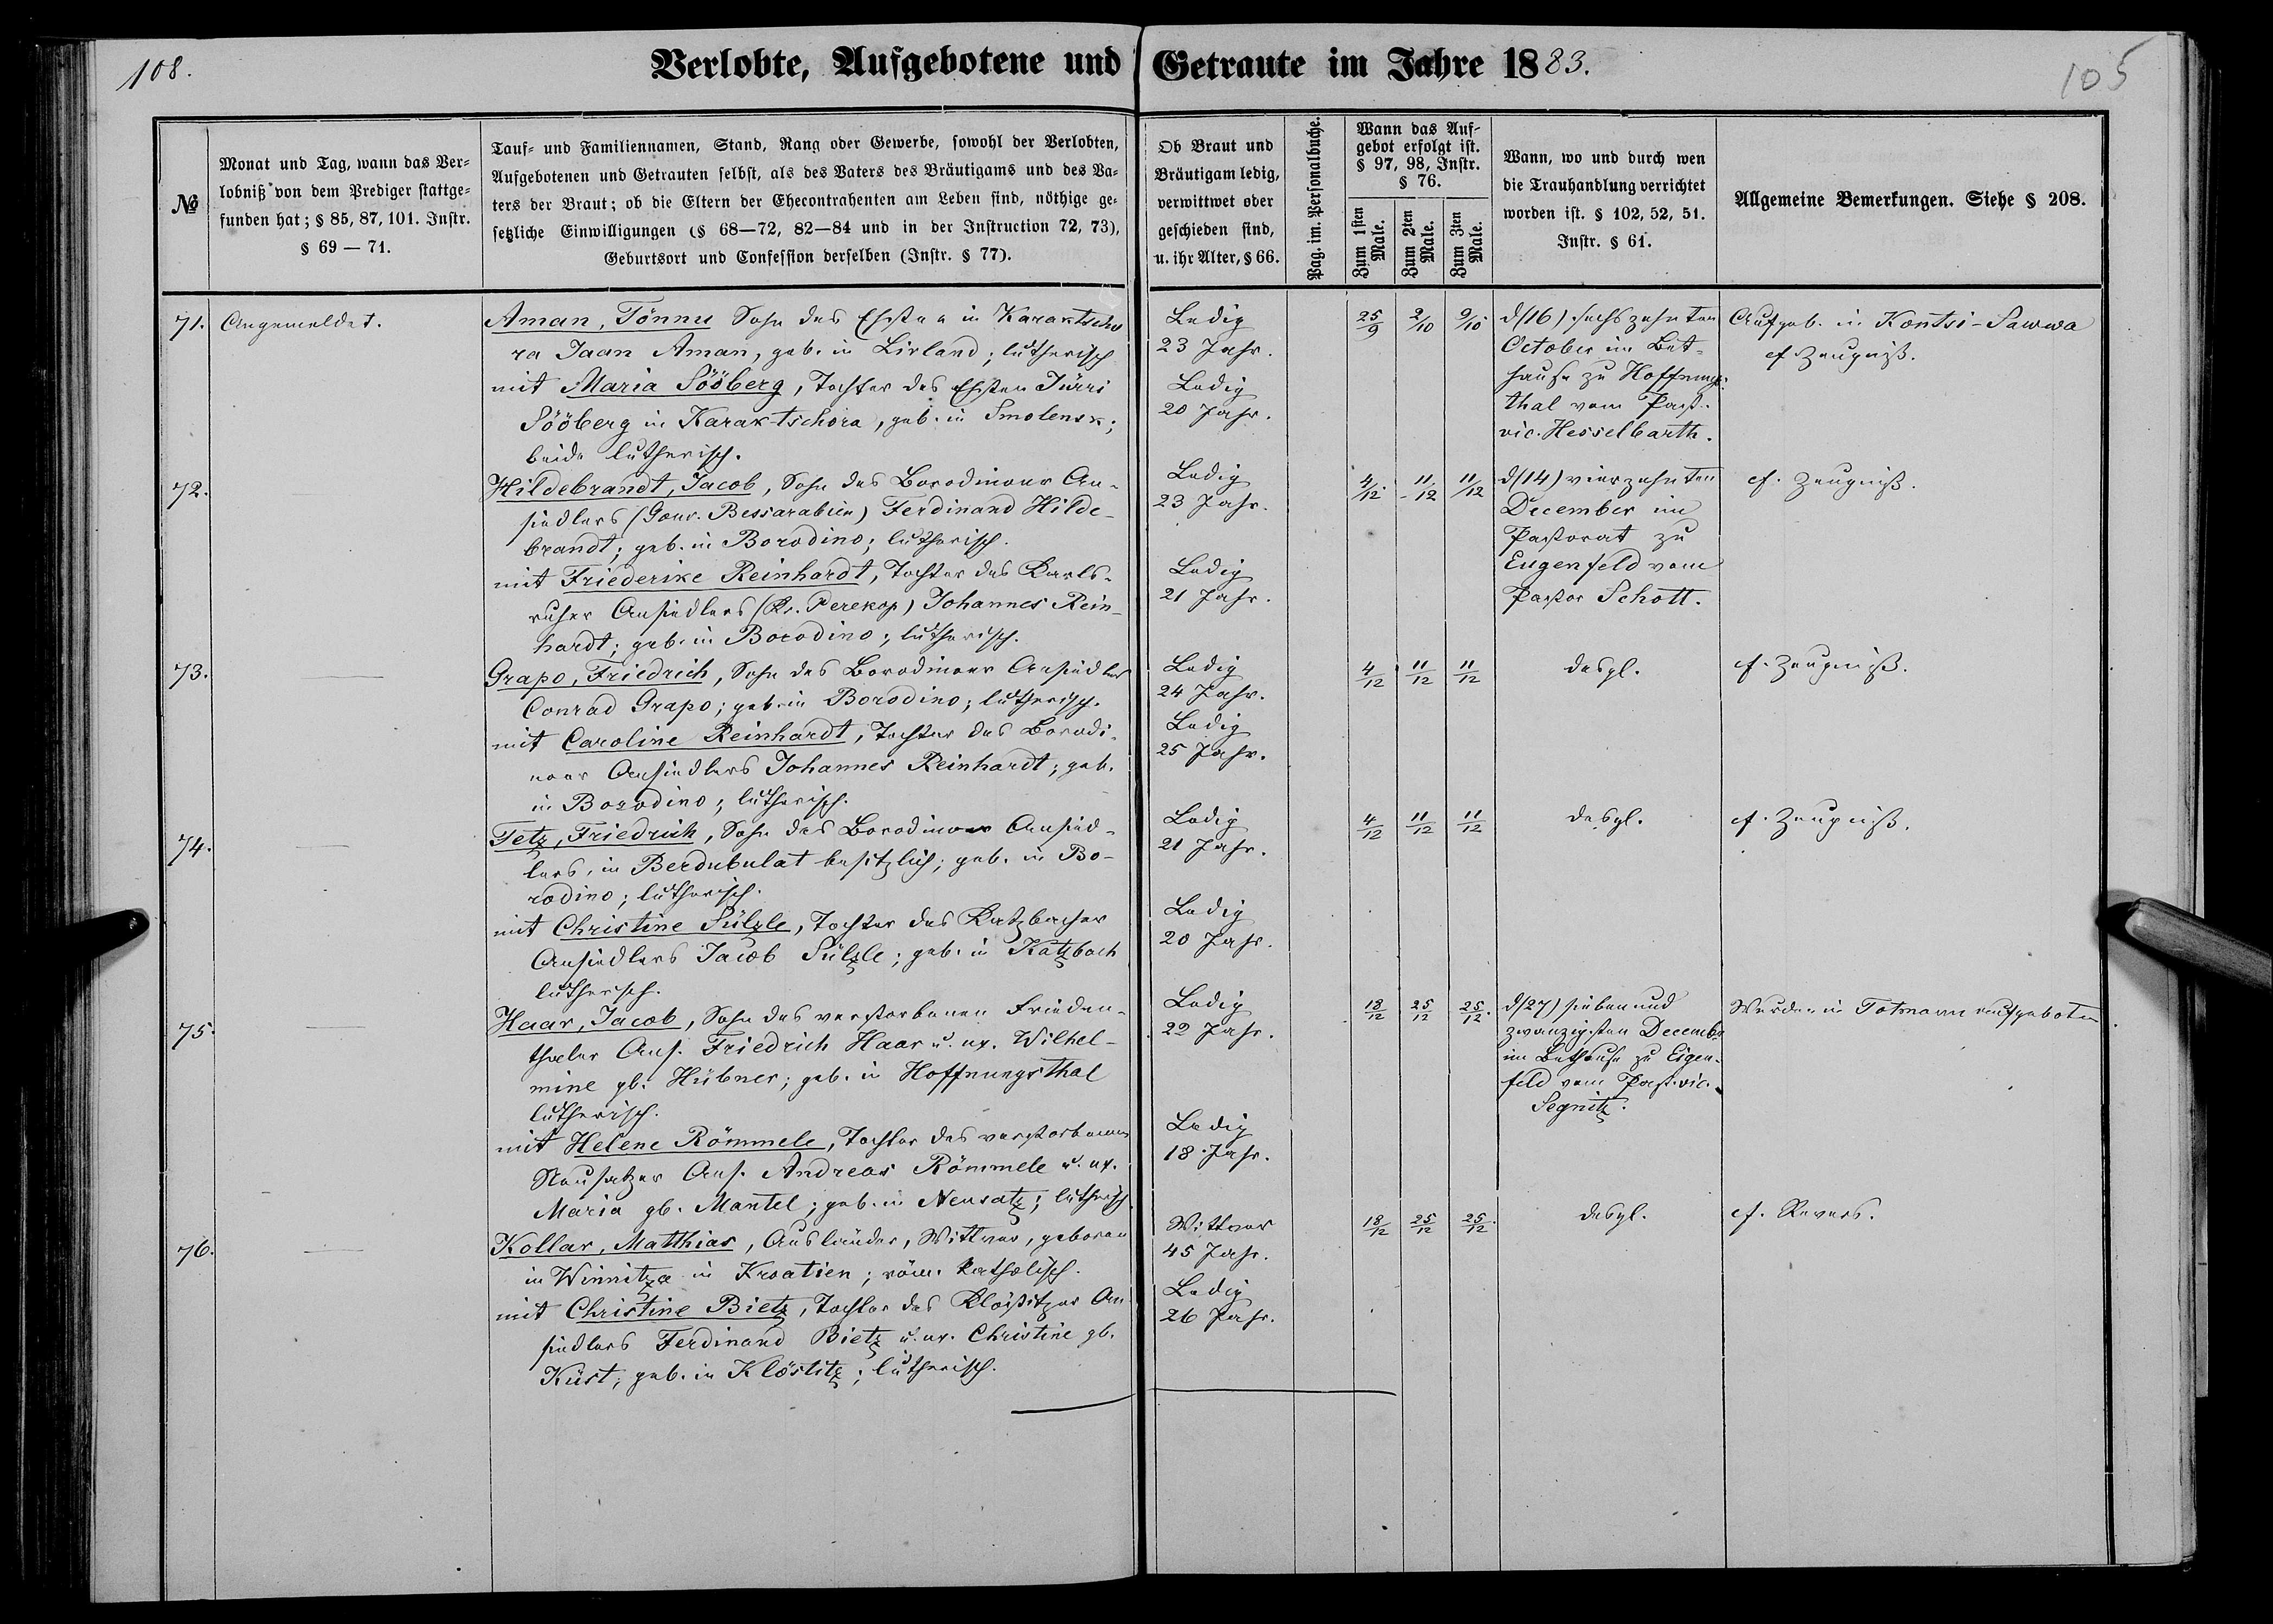 108.
Verlobte, Aufgebotene und Getraute im Jahre 1883.
105
№
Monat und Tag, wann das Ver-
lobniß von dem Prediger stattge-
funden hat; § 85, 87, 101. Instr.
§ 69 — 71.
Tauf- und Familiennamen, Stand, Rang oder Gewerbe, sowohl der Verlobten,
Aufgebotenen und Getrauten selbst, als des Vaters des Bräutigams und des Va-
ters der Braut; ob die Eltern der Ehecontrahenten am Leben sind, nöthige ge-
setzliche Einwilligungen (§ 68—72, 82—84 und in der Instruction 72, 73),
Geburtsort und Confession derselben (Instr. § 77).
Ob Braut und
Bräutigam ledig,
verwittwet oder
geschieden sind,
u. ihr Alter, § 66.
Pag. im. Personalbuche.
Wann das Auf-
gebot erfolgt ist.
§ 97, 98, Instr.
§ 76.
Zum 1sten
Male.
Zum 2ten
Male.
Zum 3ten
Male.
Wann, wo und durch wen
die Trauhandlung verrichtet
worden ist. § 102, 52, 51.
Instr. § 61.
Allgemeine Bemerkungen. Siehe § 208.
71.
Angemeldet.
Aman, Tönnu Sohn des Ehsten in Karaktscho
ra Jaan Aman, geb. in Livland; lutherisch
mit Maria Sööberg, Tochter des Ehsten Jürri
Sööberg in Karaktschora, geb. in Smolensk;
beide lutherisch.
Ledig
23 Jahr.
Ledig
20 Jahr.
25/9
2/10
9/10
d(16) sechszehnten
October im Bet-
hause zu Hoffnungs-
thal vom Past.
vic. Hesselbarth.
Aufgeb. in Kontsi-Sawwa
cf. Zeugniß.
72.
Hildebrandt, Jacob, Sohn des Borodinoer An-
siedlers (Gouv. Bessarabien) Ferdinand Hilde-
brandt; geb. in Borodino; lutherisch.
mit Friederike Reinhardt, Tochter des Karls-
ruher Ansiedlers (Kr. Perekop) Johannes Rein-
hardt; geb. in Borodino; lutherisch.
Ledig
23 Jahr.
Ledig
21 Jahr.
4/12
11/12
11/12
d(14) vierzehnten
December im
Pastorat zu
Eugenfeld vom
Pastor Schott.
cf. Zeugniß.
73.
Grapo, Friedrich, Sohn des Borodinoer Ansiedlers
Conrad Grapo; geb. in Borodino; lutherisch.
mit Caroline Reinhardt, Tochter des Borodi-
noer Ansiedlers Johannes Reinhardt; geb.
in Borodino; lutherisch.
Ledig
24 Jahr.
Ledig
25 Jahr.
4/12
11/12
11/12
desgl.
cf. Zeugniß.
74.
Tetz, Friedrich, Sohn des Borodinoer Ansied-
lers, in Berdubulat besitzlich; geb. in Bo-
rodino; lutherisch.
mit Christine Sülzle, Tochter des Katzbacher
Ansiedlers Jacob Sülzle; geb. in Katzbach
lutherisch.
Ledig
21 Jahr.
Ledig
20 Jahr.
4/12
11/12
11/12
desgl.
cf. Zeugniß.
75.
Haar, Jacob, Sohn des verstorbenen Frieden-
thaler Ans. Friedrich Haar u. ux. Wilhel-
mine gb. Hübner; geb. in Hoffnungsthal
lutherisch.
mit Helene Römmele, Tochter des verstorbenen
Neusatzer Ans. Andreas Römmele u. ux.
Maria gb. Mantel; geb. in Neusatz; lutherisch.
Ledig
22 Jahr.
Ledig
18 Jahr.
18/12
25/12
25/12.
d(27) sieben und
zwanzigsten Decembr.
im Bethause zu Eigen-
feld vom Past. vic.
Segnitz.
Wurden in Totmann aufgeboten
76.
Kollar, Matthias, Ausländer, Wittwer, geboren
in Winnitza in Kroatien; röm. katholisch.
mit Christine Bietz, Tochter des Klöstitzer An
siedlers Ferdinand Bietz u. ux. Christine gb.
Küst; geb. in Klöstitz; lutherisch.
Wittwer
45 Jahr.
Ledig
26 Jahr.
18/12
25/12
25/12.
desgl.
cf. Revers.